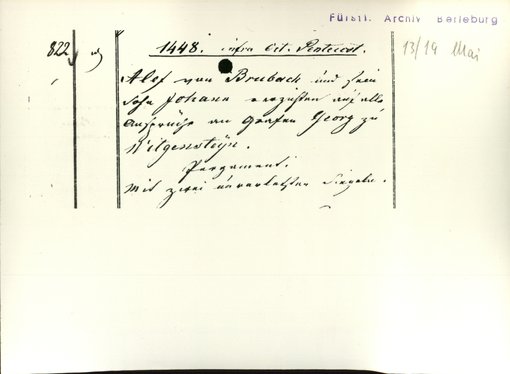 Fürstl. Archiv Berleburg
822
1448. infra oct. Pentecost.
13/19 Mai
Alef von Brubach und sein
Sohn Johann verzichten auf alle
Ansprüche an Grafen Georg zu
Witgensteyn.
Pergament.
Mit zwei unverletzten Siegeln.